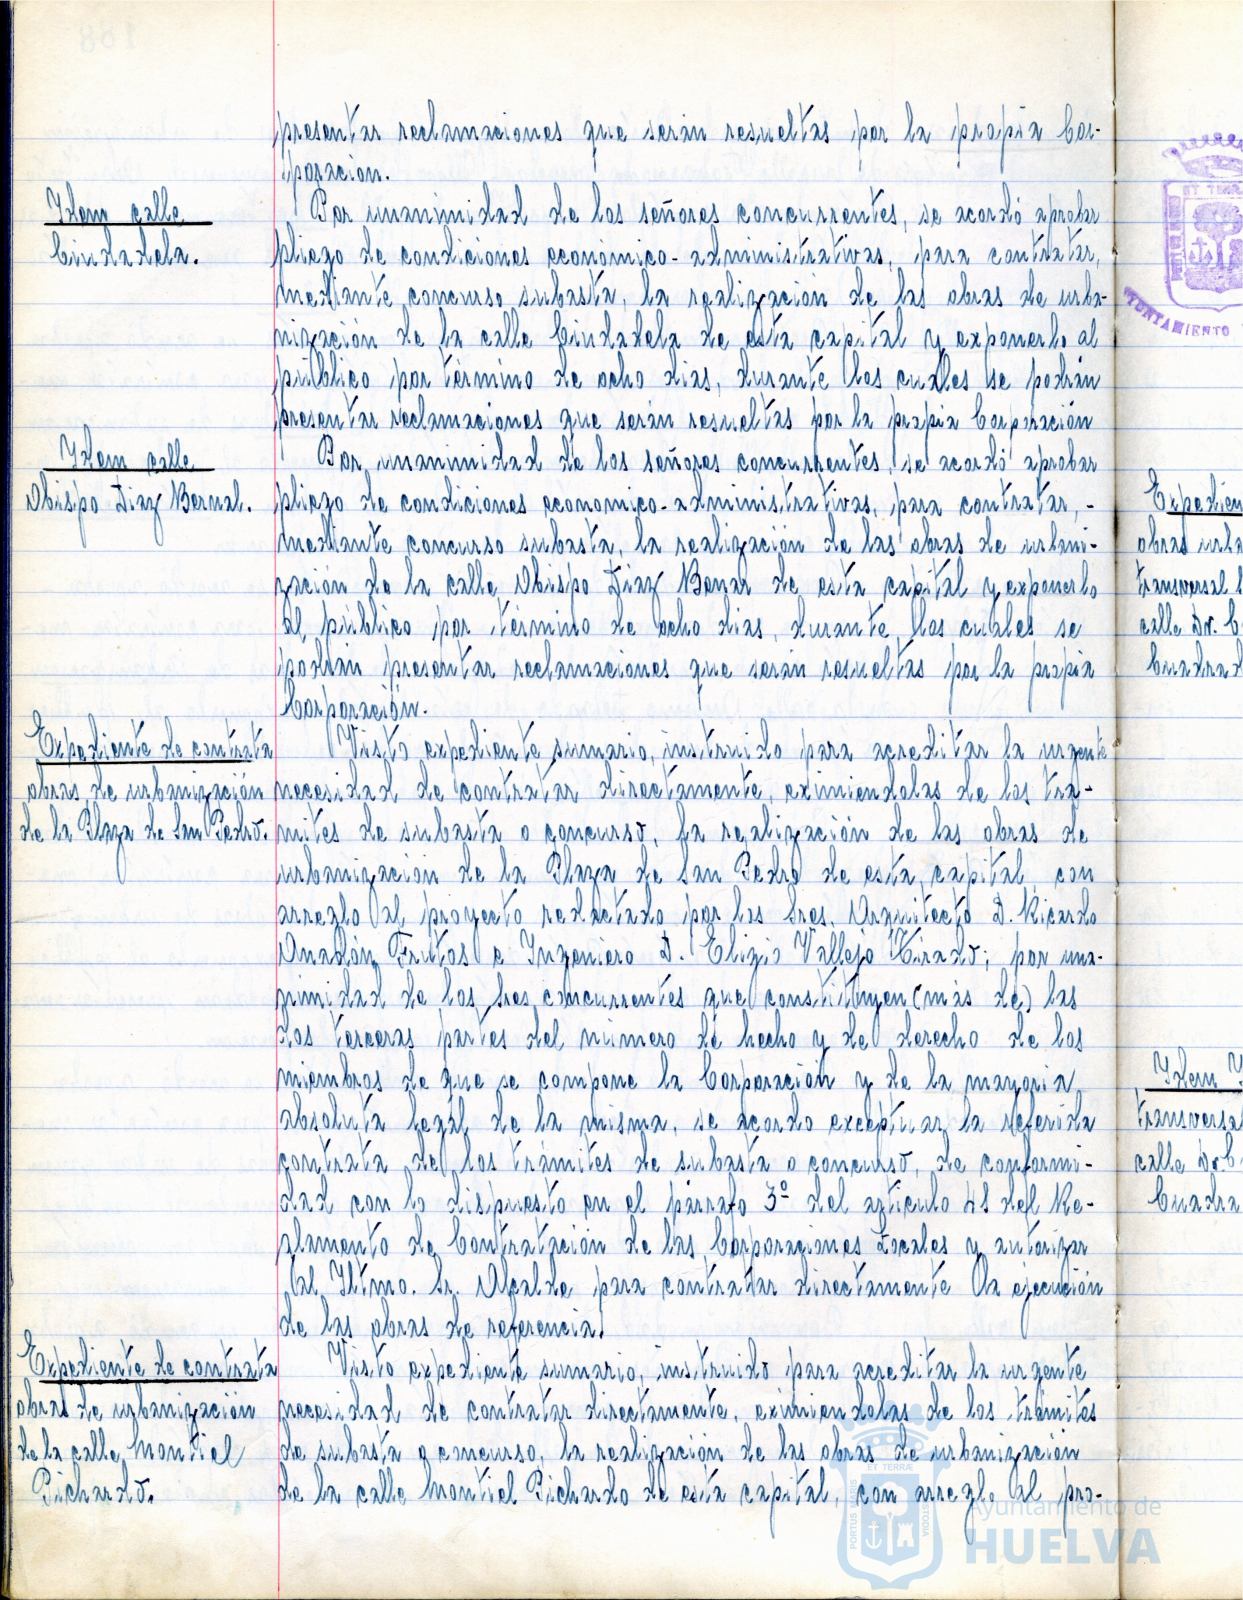 presentar reclamaciones que serán resueltas por la propia Cor-
poración.
Idem calle
Ciudadela.
Por unanimidad de los señores concurrentes, se acordó aprobar
pliego de condiciones económico-administrativas, para contratar,
mediante concurso subasta, la realización de las obras de urba-
nización de la calle Ciudadela de esta capital y exponerlo al
público por término de ocho dias, durante los cuales se podrán
presentar reclamaciones que serán resueltas por la propia Corporación
Idem calle
Obispo Diaz Bernal.
Por unanimidad de los señores concurrentes, se acordó aprobar
pliego de condiciones economico-administrativas, para contratar, -
mediante concurso subasta, la realización de las obras de urbani-
zación de la calle Obispo Diaz Benar de esta capital y exponerlo
al público por término de ocho dias, durante los cuales se
podrán presentar reclamaciones que serán resueltas por la propia
Corporación.
Expediente de contrata
obras de urbanización
de la Plaza de San Pedro.
Visto expediente sumario, instruido para acreditar la urgente
necesidad de contratar directamente, eximiendolas de los trá-
mites de subasta o concurso, la realización de las obras de
urbanización de la Plaza de San Pedro de esta capital con
arreglo al proyecto redactado por los Sres. Arquitecto D. Ricardo
Anadón Frutos e Ingeniero D. Eligio Vallejo Tirado; por una-
nimidad de los Sres. concurrentes que constituyen (más de) las
dos terceras partes del número de hecho y de derecho de los
miembros de que se compone la Corporación y de la mayoria
absoluta legal de la misma, se acordo exceptuar la referida
contrata de los trámites de subasta o concurso, de conformi-
dad con lo dispuesto en el párrafo 3º del articulo 41 del Re-
glamento de Contratación de las Corporaciones Locales y autorizar
al Iltmo. Sr. Alcalde para contratar directamente la ejecución
de las obras de referencia.
Expediente de contrata
obras de urbanización
de la calle Montiel
Pichardo.
Visto expediente sumario, instruido para acreditar la urgente
necesidad de contratar directamente, eximiendolas de los trámites
de subasta o concurso, la realización de las obras de urbanización
de la calle Montiel Pichardo de esta capital, con arreglo al pro-
ET TERRAE
PORTUS MARIS
CUSTODIA
Ayuntamiento de
HUELVA
ET TERR
AYUNTAMIENTO
Expedien
obras urba
transversal
calle Dr. C
Cuadrad
Idem
transversal
calle Dr. C
Cuadra